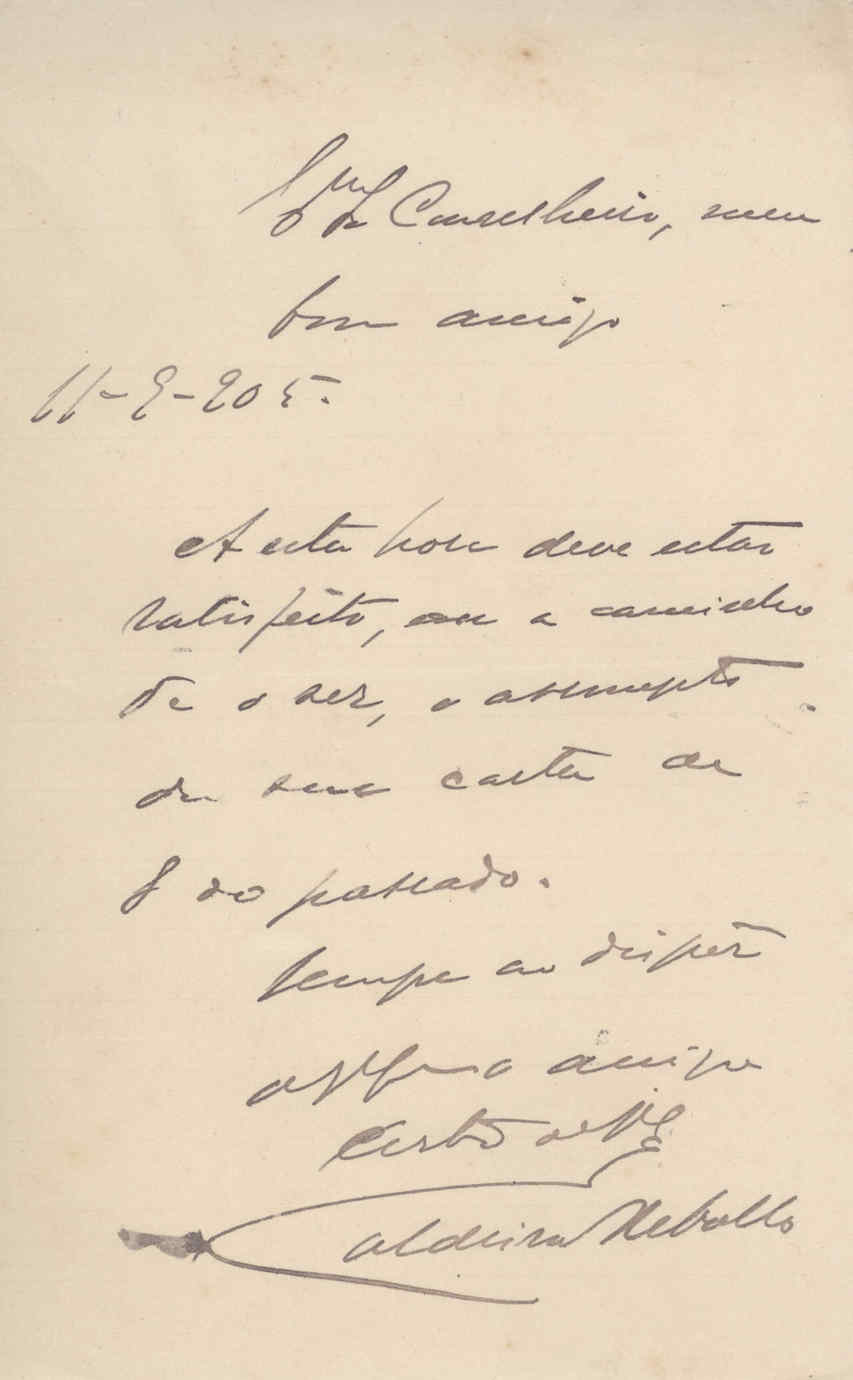 Conselheiro, meu
bom amigo
11-2-905.
A esta hora deve estar
satisfeito, ou a caminho
de o ser, o assumpto
da sua carta de
8 do passado.
Sempre ao dispôr
amigo
certo de V. E.
Caldeira Rebollo